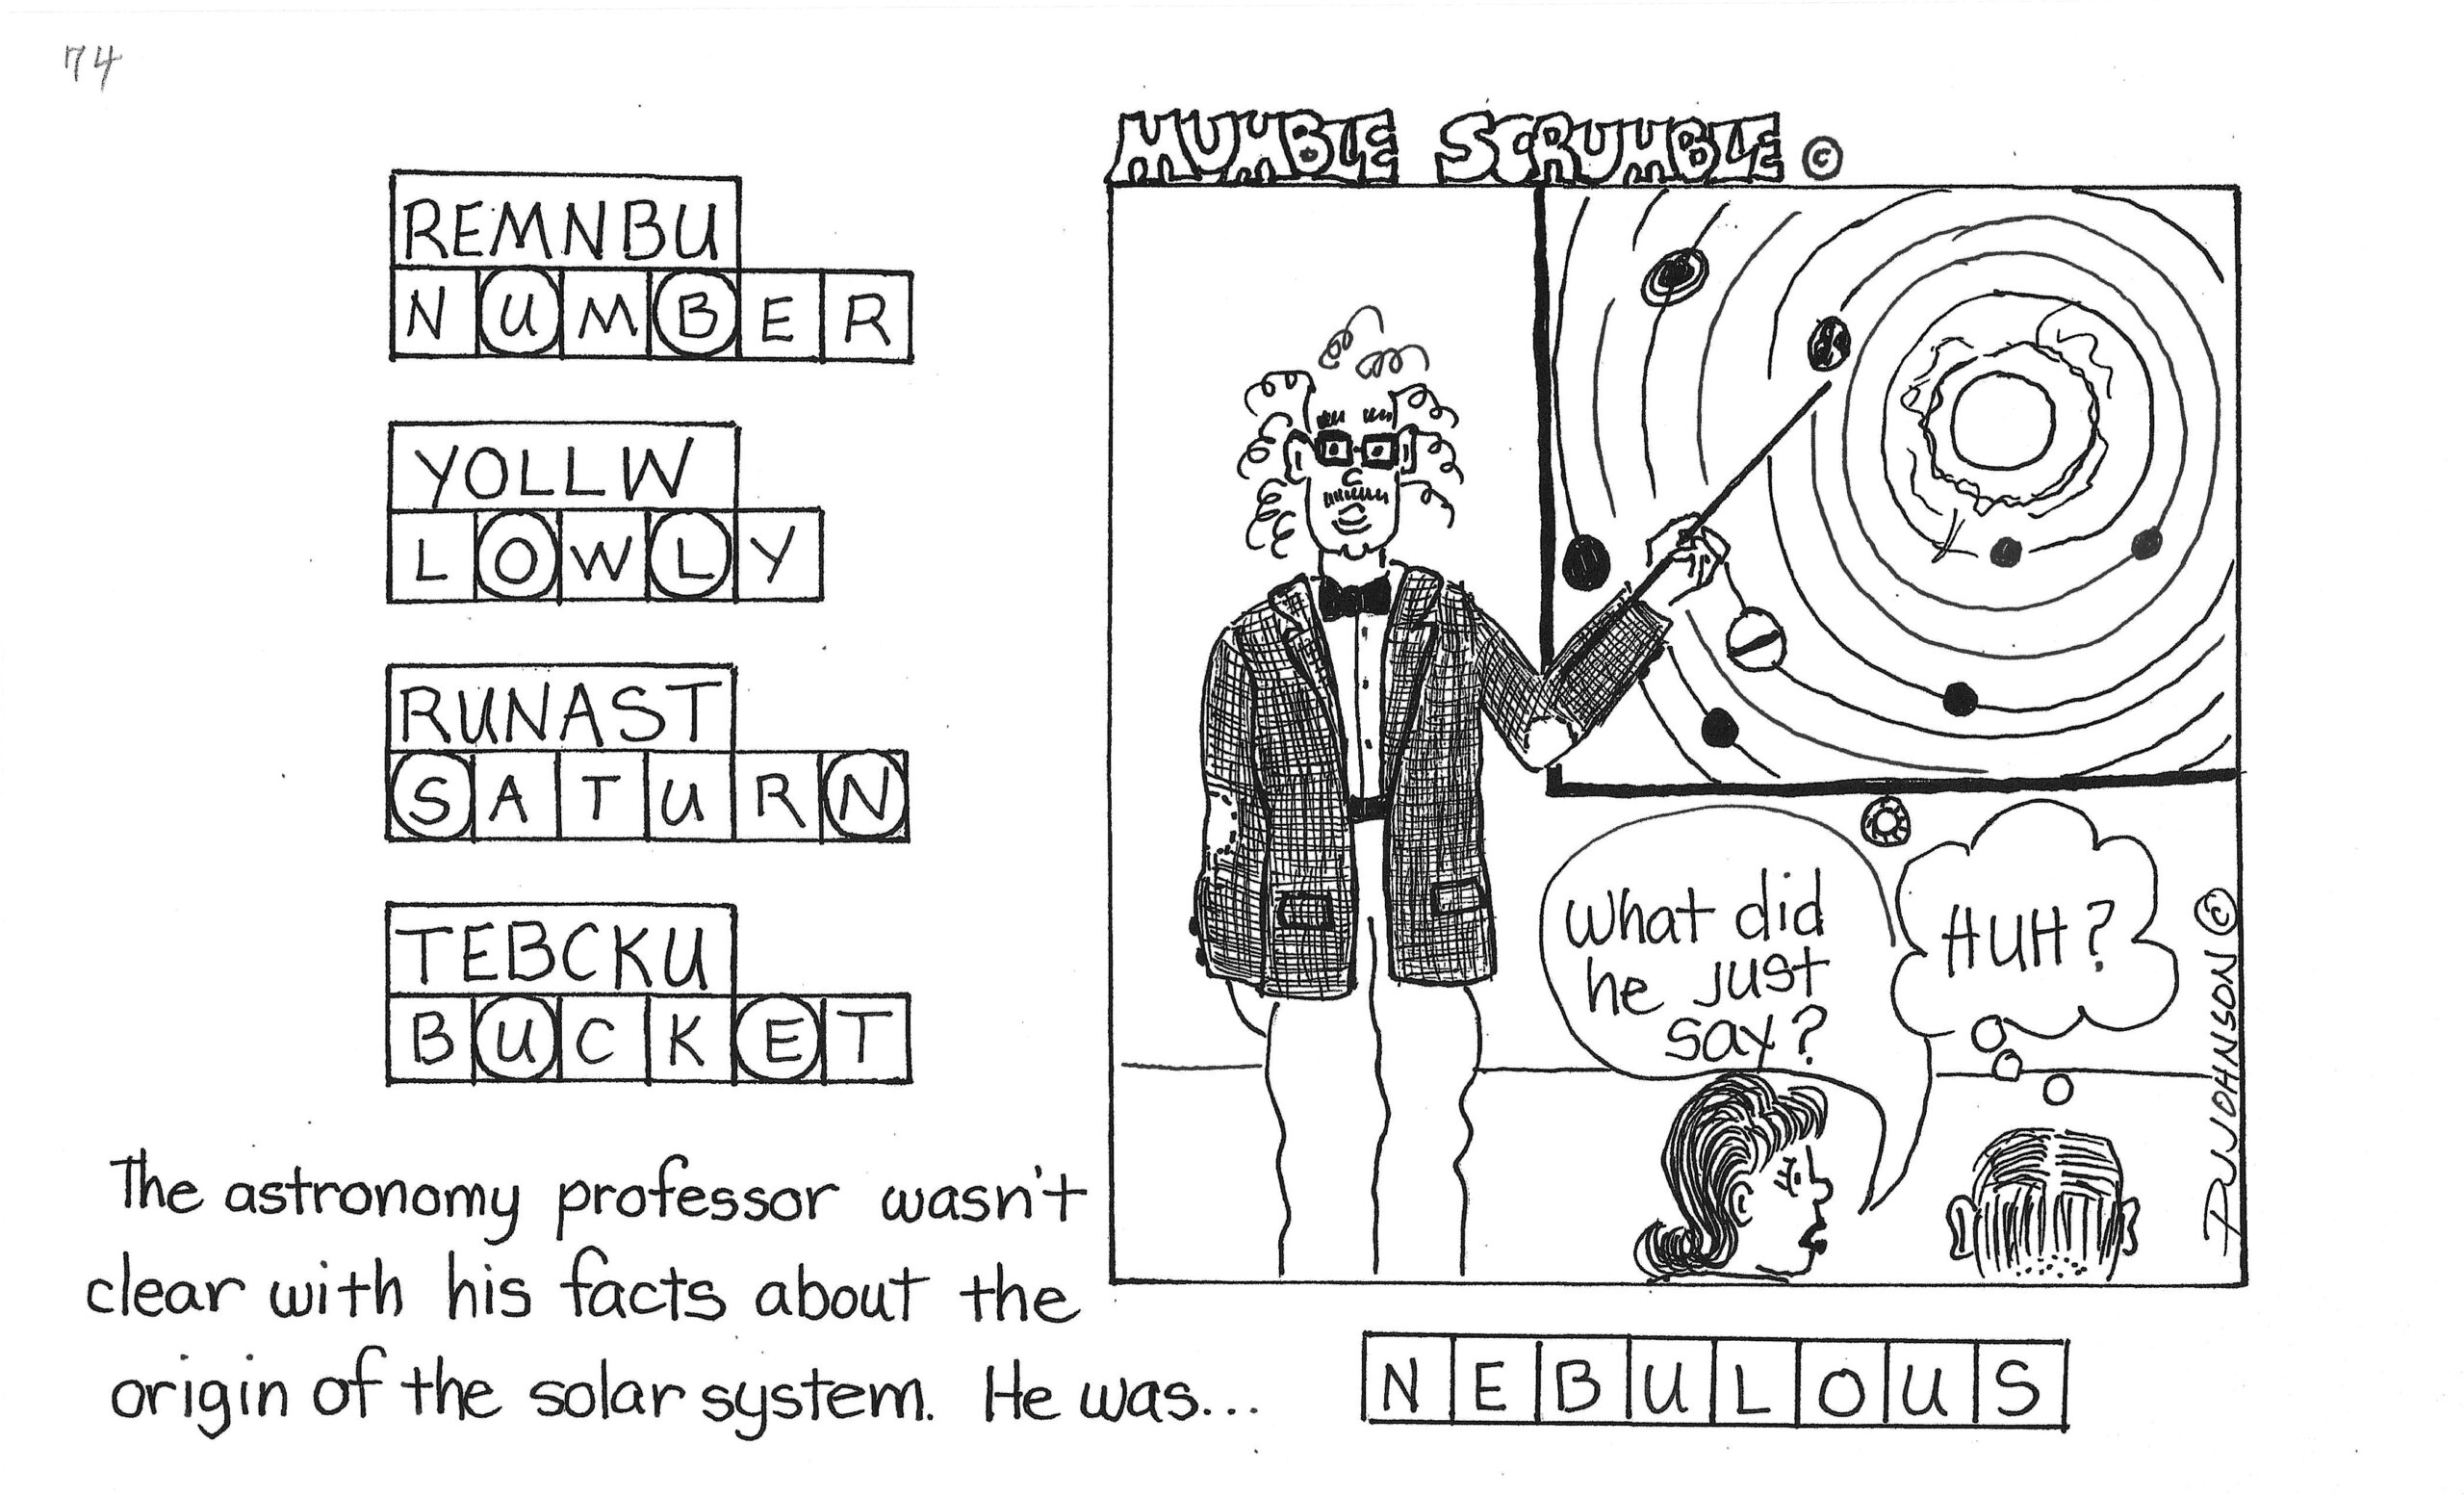 74
MUMBLE SCRUMBLE ©
REMNBU
NUMBER
YOLLW
LOWLY
RUNAST
SATURN
TEBCKU
BUCKET
What did
he just
say?
HUH?
DJJOHNSON ©
The astronomy professor wasn't
clear with his facts about the
origin of the solar system. He was...
NEBULOUS